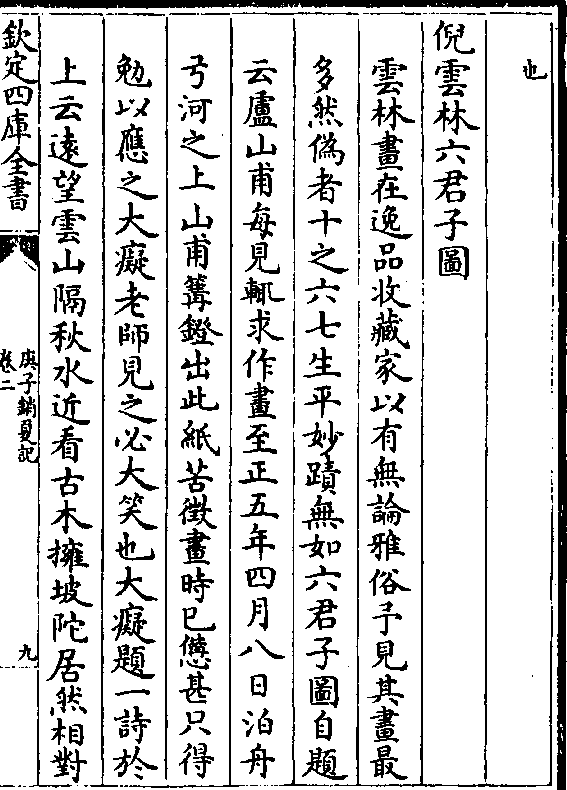 也
倪雲林六君子圖
雲林畫在逸品收藏家以有無論雅俗予見其畫最
多然偽者十之六七生平妙蹟無如六君子圖自題
云廬山甫每見輒求作畫至正五年四月八日泊舟
弓河之上山甫篝鐙出此紙苦徵畫時已憊甚只得
勉以應之大癡老師見之必大笑也大癡題一詩於
上云遠望雲山隔秋水近看古木擁坡陀居然相對
欽定四庫全書
庚子銷夏記
卷二
九